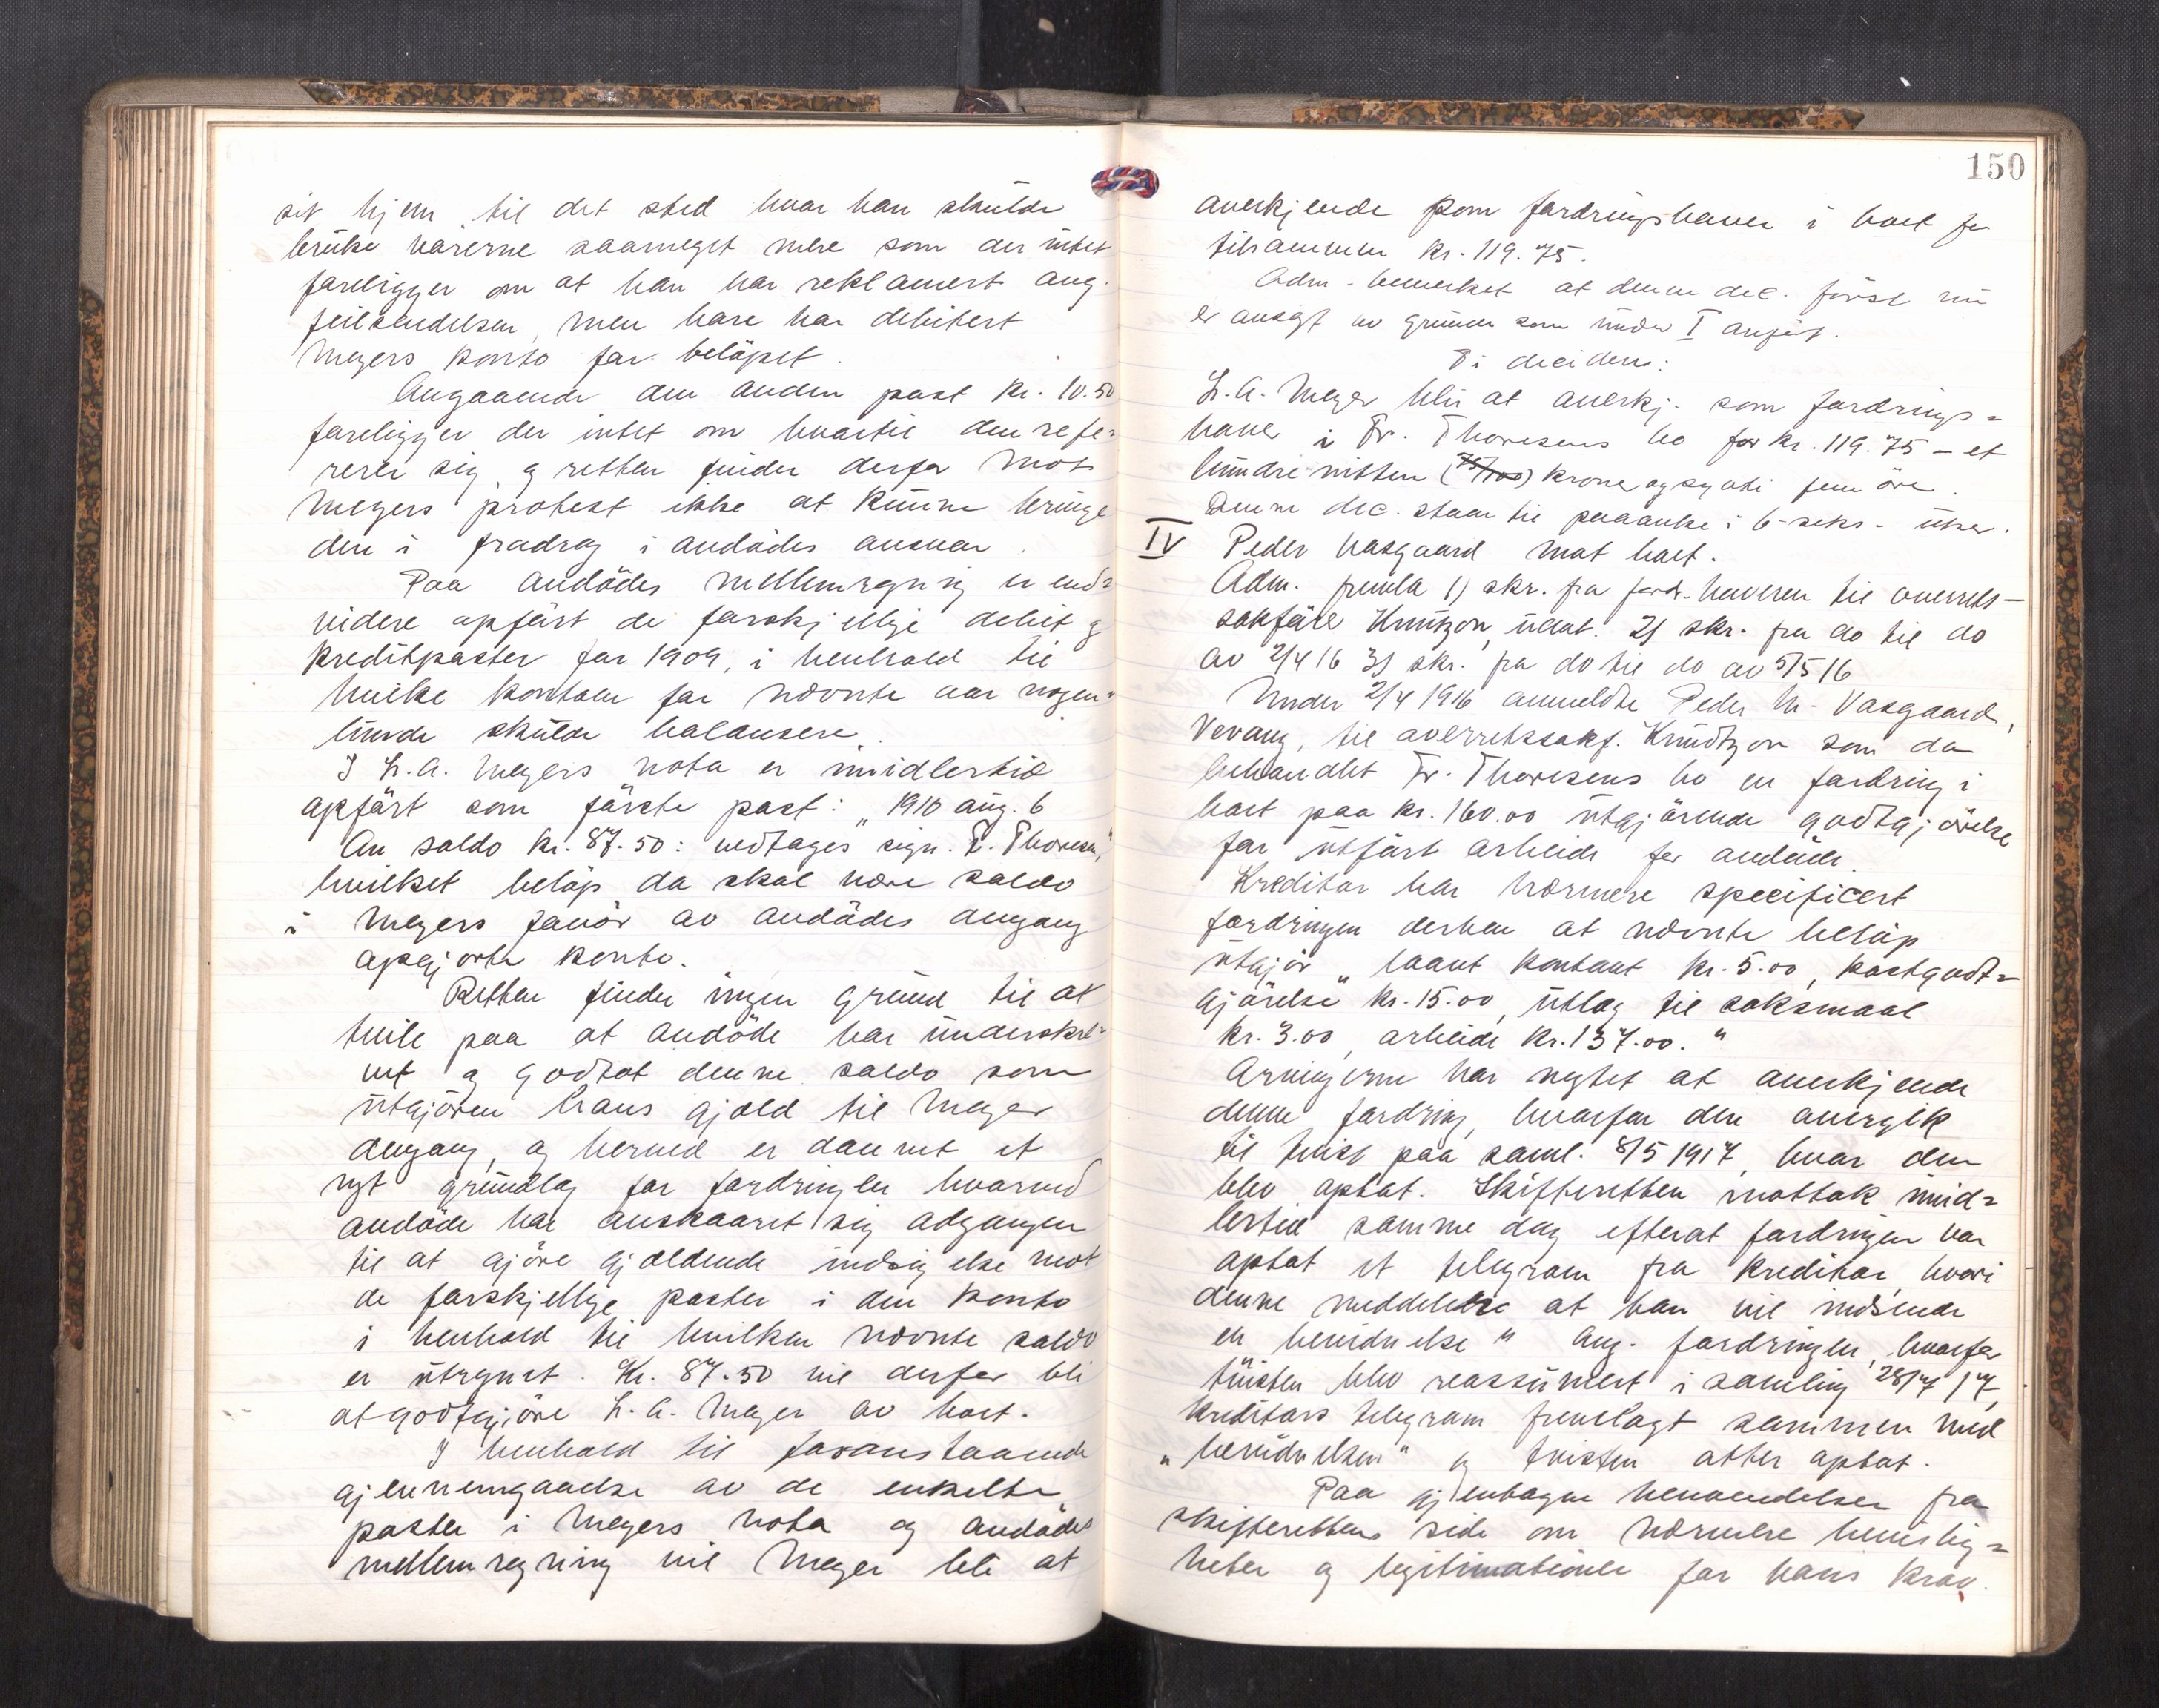 sit hjem til det sted hvor han skulde
bruke varerne saameget mere som der intet
foreligger om at han har reklamert ang.
feilsendelsen, men bare har debitert
Meyers konto for beløpet.
Angaaende den anden post kr. 10.50
foreligger der intet om hvortil den refe=
rerer sig, og retten finder derfor mot
Meyers protest ikke at kunne bringe
den i fradrag i avdødes ansvar.
Paa avdødes mellemregning er end=
videre opført de forskjellige debit og
kreditposter for 1909, i henhold til
hvilke kontoen for nævnte aar nogen=
lunde skulde balansere.
I L. A. Meyers nota er imidlertid
opført som første post: „1910 aug. 6
An saldo kr. 87.50: vedtages sign. Fr. Thoresen",
hvilket beløp da skal være saldo
i Meyers favør av avdødes dengang
opgjorte konto.
Retten finder ingen grund til at
tvile paa at avdøde har underskre=
vet og godtat denne saldo som
utgjøren hans gjæld til Meyer
dengang, og herved er dannet et
nyt grundlag for fordringen hvorved
avdøde har avskaaret sig adgangen
til at gjøre gjældende indsigelse mot
de forskjellige poster i den konto
i henhold til hvilken nævnte saldo
er utregnet. Kr. 87.50 vil derfor bli
at godtgjøre L. A. Meyer av boet.
I henhold til foranstaaende
gjennemgaaelse av de enkelte
poster i Meyers nota og avdødes
mellemregning vil Meyer bli at
150
anerkjende som fordringshaver i boet for
tilsammen kr. 119.75.
Adm. bemerket at denne dec. først nu
er avsagt av grunder som under I anført.
Ti decidere:
L. A. Meyer blir at anerkj. som fordrings=
haver i Fr. Thoresens bo for kr. 119.75 – et
hundre nitten (75/100) kroner og sytti fem øre.
Denne dec. staar til paaanke i 6-seks- uker.
IV Peder Vasgaard mot boet.
Adm. fremla 1) skr. fra fordr.haveren til overrets-
sakfører Knutzon, udat. 2) skr. fra do til do
av 2/4 16 3) skr. fra do til do av 5/5 16
Under 2/4 1916 anmeldte Peder M. Vasgaard,
Vevang, til overretssakf. Knudtzon som da
behandlet Fr. Thoresens bo en fordring i
boet paa kr. 160.00 utgjørende godtgjørelse
for utført arbeide for avdøde.
Kreditor har nærmere specificert
fordringen derhen at nævnte beløp
utgjør „laant kontant kr. 5.00, kostgodt=
gjørelse kr. 15.00, utlæg til søksmaal
kr. 3.00, arbeide kr. 137.00."
Arvingerne har negtet at anerkjende
denne fordring, hvorfor den overgik
til tvist paa saml. 8/5 1917, hvor den
blev optat. Skifteretten mottok imid=
lertid samme dag efterat fordringen var
optat et telegram fra kreditor, hvori
denne meddeler at han vil indsende
en „bevidnelse" ang. fordringen, hvorfor
tvisten blev reassumert i samling 28/7 17,
kreditors telegram fremlagt sammen med
„bevidnelsen" og tvisten atter optat.
Paa gjentagne henvendelser fra
skifterettens side om nærmere bevislig=
heter og legitimationer for hans krav